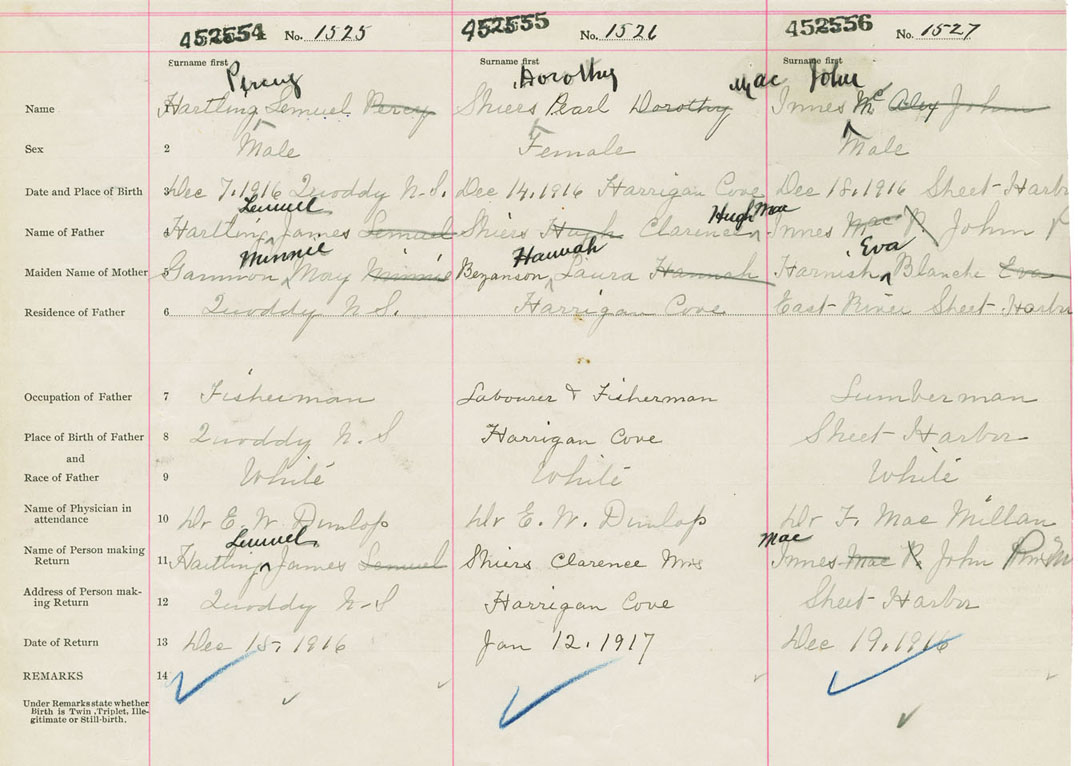 452554 No. 1525 452555 No. 1526 452556 No. 1527
Surname first Surname first Surname first
Percy Dorothy Mac John
Name Hartling Lemuel Percy Skiers Pearl Dorothy Innes Mc Alex John
Sex 2 Male Female Male
Date and Place of Birth 3 Dec 7, 1916 Quoddy N.S. Dec 14, 1916 Harrigan Cove Dec 18, 1916 Sheet Harbor
Lemuel Hugh Mac
Name of Father 4 Hartling James Lemuel Skiers Hugh Clarence Innes Mac R. John
Minnie Hannah Eva
Maiden Name of Mother 5 Gammon May Minnie Bezanson Laura Hannah Harnish Blanche Eva
Residence of Father 6 Quoddy N.S. Harrigan Cove East River Sheet Harbor
Occupation of Father 7 Fisherman Labourer & Fisherman Lumberman
Place of Birth of Father 8 Quoddy N.S Harrigan Cove Sheet Harbor
and
Race of Father 9 White White White
Name of Physician in
attendance 10 Dr E. W. Dunlop Dr E. W. Dunlop Dr F. Mac Millan
Lemuel Mac
Name of Person making
Return 11 Hartling James Lemuel Skiers Clarence Mrs Innes Mac R. John
Address of Person mak-
ing Return 12 Quoddy N-S Harrigan Cove Sheet Harbor
Date of Return 13 Dec 15, 1916 Jan 12, 1917 Dec 19, 1916
REMARKS 14
Under Remarks state whether
Birth is Twin, Triplet, Ille-
gitimate or Still-birth.